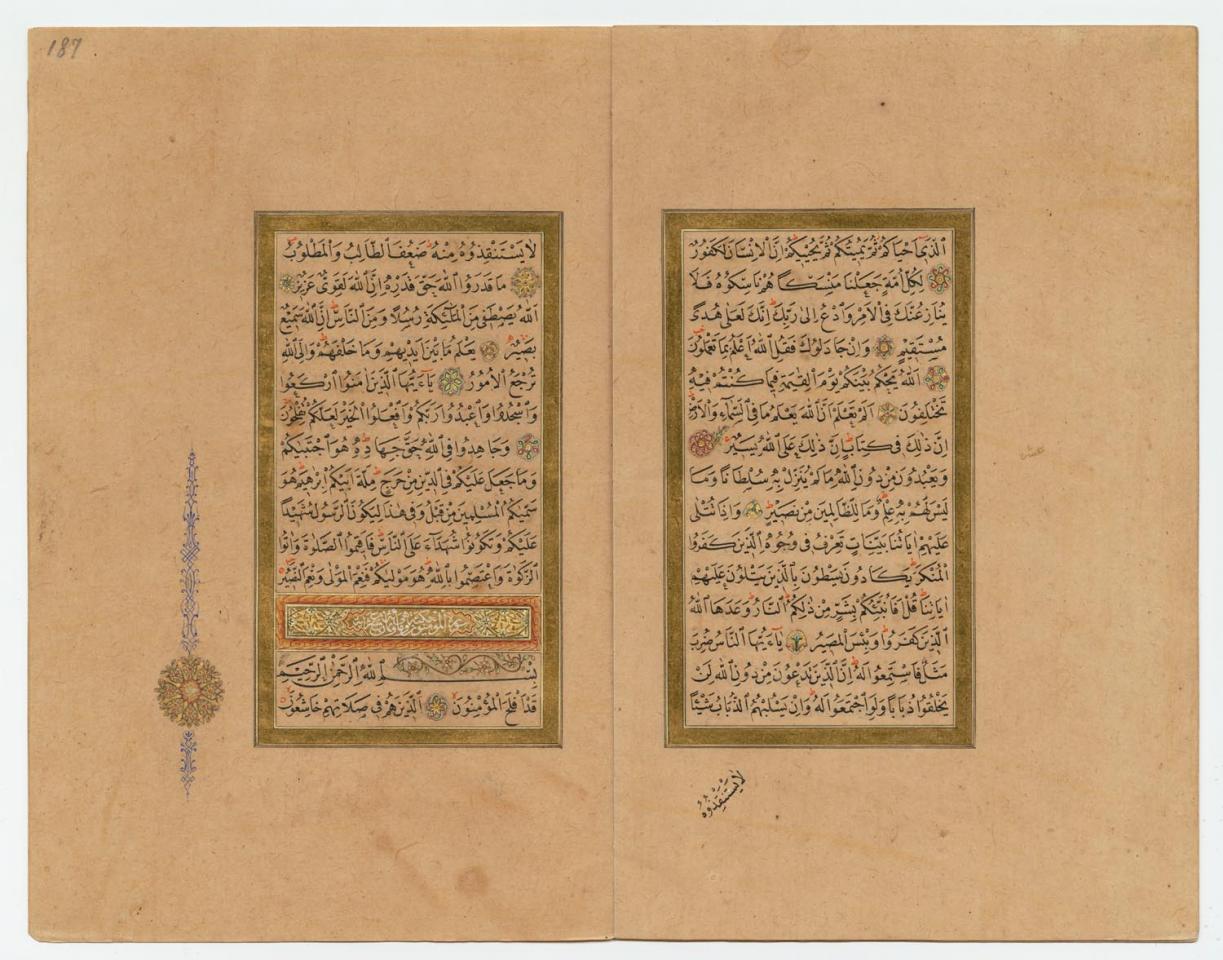 اَلَّذٖى اَحْيَاكُمْ ثُمَّ يُمٖيتُكُمْ ثُمَّ يُحْيٖيكُمْ اِنَّ الْاِنْسَانَ لَكَفُورٌ
لِكُلِّ اُمَّةٍ جَعَلْنَا مَنْسَكًا هُمْ نَاسِكُوهُ فَلَا
يُنَازِعُنَّكَ فِى الْاَمْرِ وَادْعُ اِلٰى رَبِّكَ اِنَّكَ لَعَلٰى هُدًى
مُسْتَقٖيمٍ وَاِنْ جَادَلُوكَ فَقُلِ اللّٰهُ اَعْلَمُ بِمَا تَعْمَلُونَ
اَللّٰهُ يَحْكُمُ بَيْنَكُمْ يَوْمَ الْقِيٰمَةِ فٖيمَا كُنْتُمْ فٖيهِ
تَخْتَلِفُونَ اَلَمْ تَعْلَمْ اَنَّ اللّٰهَ يَعْلَمُ مَا فِى السَّمَاءِ وَالْاَرْضِ
اِنَّ ذٰلِكَ فٖى كِتَابٍ اِنَّ ذٰلِكَ عَلَى اللّٰهِ يَسٖيرٌ
وَيَعْبُدُونَ مِنْ دُونِ اللّٰهِ مَا لَمْ يُنَزِّلْ بِهٖ سُلْطَانًا وَمَا
لَيْسَ لَهُمْ بِهٖ عِلْمٌ وَمَا لِلظَّالِمٖينَ مِنْ نَصٖيرٍ وَاِذَا تُتْلٰى
عَلَيْهِمْ اٰيَاتُنَا بَيِّنَاتٍ تَعْرِفُ فٖى وُجُوهِ الَّذٖينَ كَفَرُوا
الْمُنْكَرَ يَكَادُونَ يَسْطُونَ بِالَّذٖينَ يَتْلُونَ عَلَيْهِمْ
اٰيَاتِنَا قُلْ اَفَاُنَبِّئُكُمْ بِشَرٍّ مِنْ ذٰلِكُمُ النَّارُ وَعَدَهَا اللّٰهُ
الَّذٖينَ كَفَرُوا وَبِئْسَ الْمَصٖيرُ يَاءَيُّهَا النَّاسُ ضُرِبَ
مَثَلٌ فَاسْتَمِعُوا لَهُ اِنَّ الَّذٖينَ تَدْعُونَ مِنْ دُونِ اللّٰهِ لَنْ
يَخْلُقُوا ذُبَابًا وَلَوِ اجْتَمَعُوا لَهُ وَاِنْ يَسْلُبْهُمُ الذُّبَابُ شَيْئًا
لَا يَسْتَنْقِذُوهُ
187
لَا يَسْتَنْقِذُوهُ مِنْهُ ضَعُفَ الطَّالِبُ وَالْمَطْلُوبُ
مَا قَدَرُوا اللّٰهَ حَقَّ قَدْرِهٖ اِنَّ اللّٰهَ لَقَوِىٌّ عَزٖيزٌ
اَللّٰهُ يَصْطَفٖى مِنَ الْمَلٰئِكَةِ رُسُلًا وَمِنَ النَّاسِ اِنَّ اللّٰهَ سَمٖيعٌ
بَصٖيرٌ يَعْلَمُ مَا بَيْنَ اَيْدٖيهِمْ وَمَا خَلْفَهُمْ وَاِلَى اللّٰهِ
تُرْجَعُ الْاُمُورُ يَاءَيُّهَا الَّذٖينَ اٰمَنُوا ارْكَعُوا
وَاسْجُدُوا وَاعْبُدُوا رَبَّكُمْ وَافْعَلُوا الْخَيْرَ لَعَلَّكُمْ تُفْلِحُونَ
وَجَاهِدُوا فِى اللّٰهِ حَقَّ جِهَادِهٖ هُوَ اجْتَبٰيكُمْ
وَمَا جَعَلَ عَلَيْكُمْ فِى الدّٖينِ مِنْ حَرَجٍ مِلَّةَ اَبٖيكُمْ اِبْرٰهٖيمَ هُوَ
سَمّٰيكُمُ الْمُسْلِمٖينَ مِنْ قَبْلُ وَفٖى هٰذَا لِيَكُونَ الرَّسُولُ شَهٖيدًا
عَلَيْكُمْ وَتَكُونُوا شُهَدَاءَ عَلَى النَّاسِ فَاَقٖيمُوا الصَّلٰوةَ وَاٰتُوا
الزَّكٰوةَ وَاعْتَصِمُوا بِاللّٰهِ هُوَ مَوْلٰيكُمْ فَنِعْمَ الْمَوْلٰى وَنِعْمَ النَّصٖيرُ
سورة المؤمنون
بِسْمِ اللّٰهِ الرَّحْمٰنِ الرَّحٖيمِ
قَدْ اَفْلَحَ الْمُؤْمِنُونَ الَّذٖينَ هُمْ فٖى صَلَاتِهِمْ خَاشِعُونَ